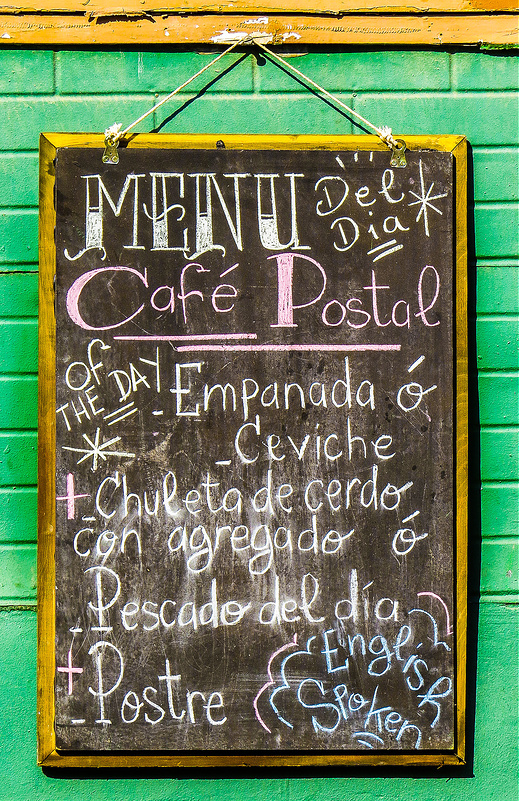 MENU Del Día
Café Postal
OF THE DAY
- Empanada ó
- Ceviche
+
- Chuleta de cerdo
con agregado ó
- Pescado del día
+
- Postre
English
Spoken